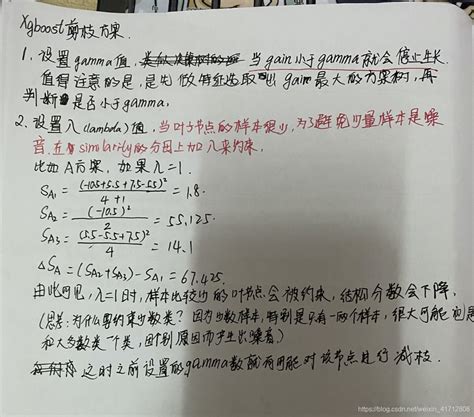 Xgboost剪枝方案.
1. 设置gamma值, 当gain小于gamma就会停止生长.
值得注意的是,是先做特征选取出gain最大的方案树,再
判断是否小于gamma.
2. 设置入(lambda)值,当叶子节点的样本很少,为了避免少量样本是噪
音,在similarity的分母上加入来约束.
比如A方案,如果λ=1.
SA1 = (-10.5+5.5+7.5-5.5)² / 4+1 = 1.8.
SA2 = (-10.5)² / 2 = 55.125.
SA3 = (5.5-5.5+7.5)² / 4 = 14.1
ΔSA = (SA2+SA3)-SA1 = 67.425.
由此可见,λ=1时,样本比较少的叶节点会被约束,结构分数会下降,
(思考:为什么要约束少数类?因为少数样本,特别是只有一两个样本,很大可能也是
和大多数类一个类,因个别原因而产生出噪音)
这时之前设置的gamma数前有可能对该节点进行减枝.
https://blog.csdn.net/weixin_41712808